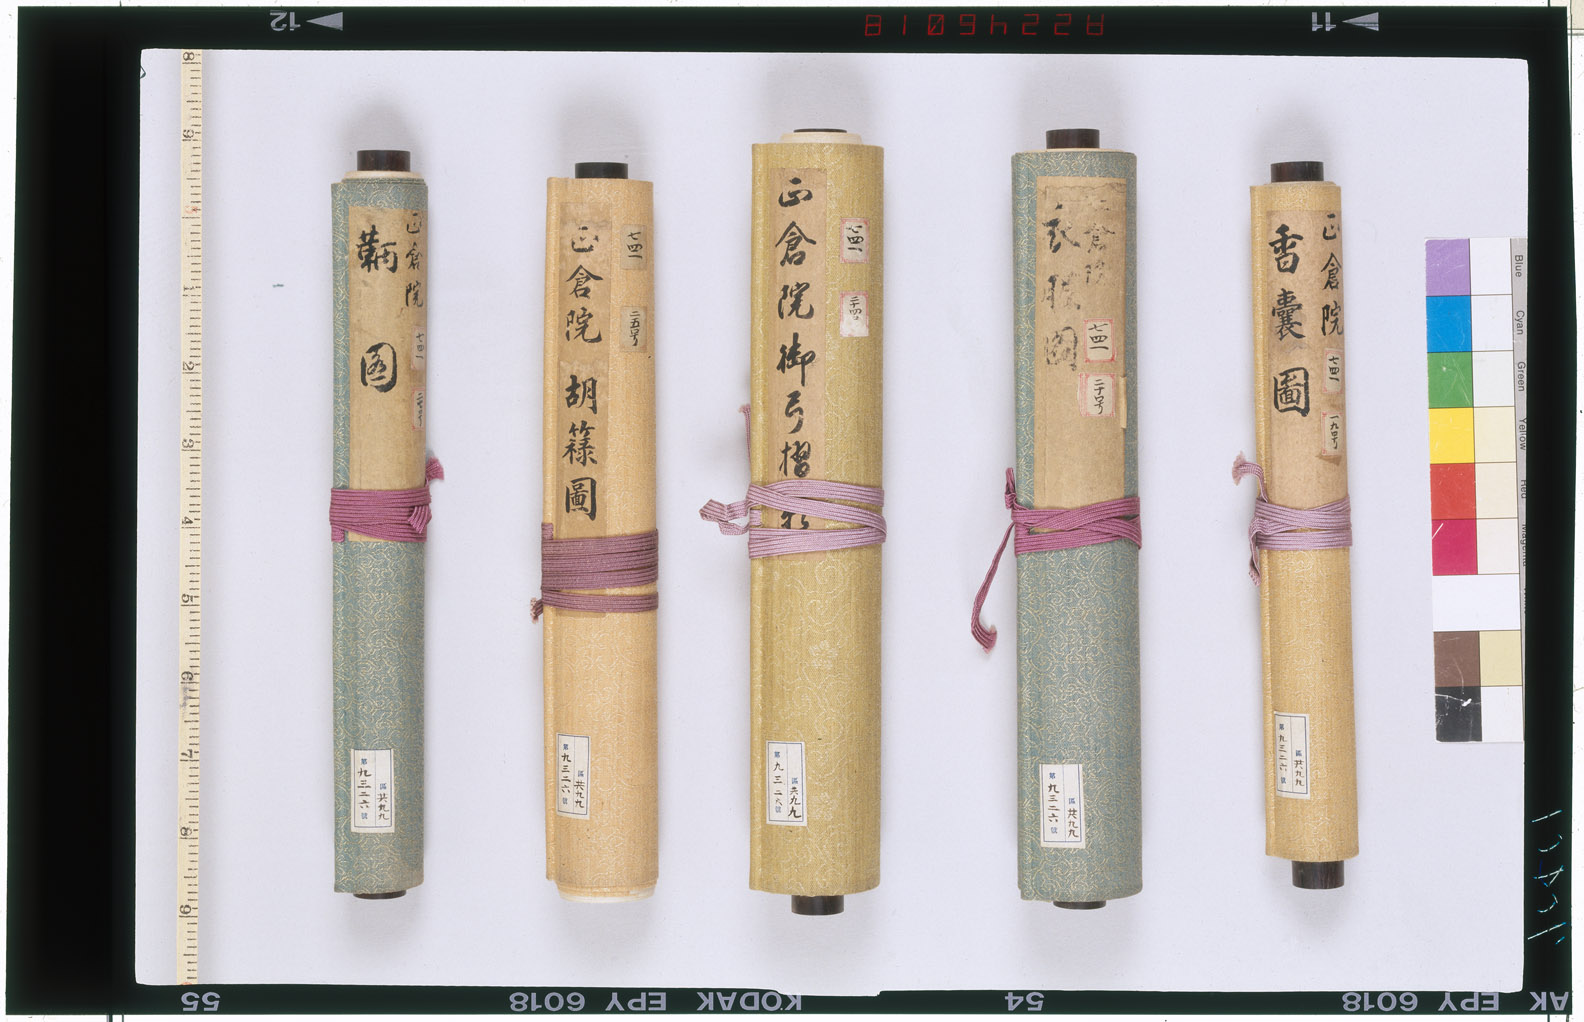 12
11
A2245018
正倉院
鞆
圖
七四一
第九三二六號
區共九九
正倉院
胡籙圖
七四一
二五号
第九三二六號
區共九九
正倉院御弓摺
七四一
二十四号
第九三二六號
區共九九
正倉院
衣服圖
七四一
二十口号
第九三二六號
區共九九
正倉院
香囊圖
七四一
一九号
第九三二六號
區共九九
8
9
1
2
3
4
5
6
7
8
9
Blue
Cyan
Green
Yellow
Red
Magenta
55
KODAK EPY 6018
54
AK EPY 6018